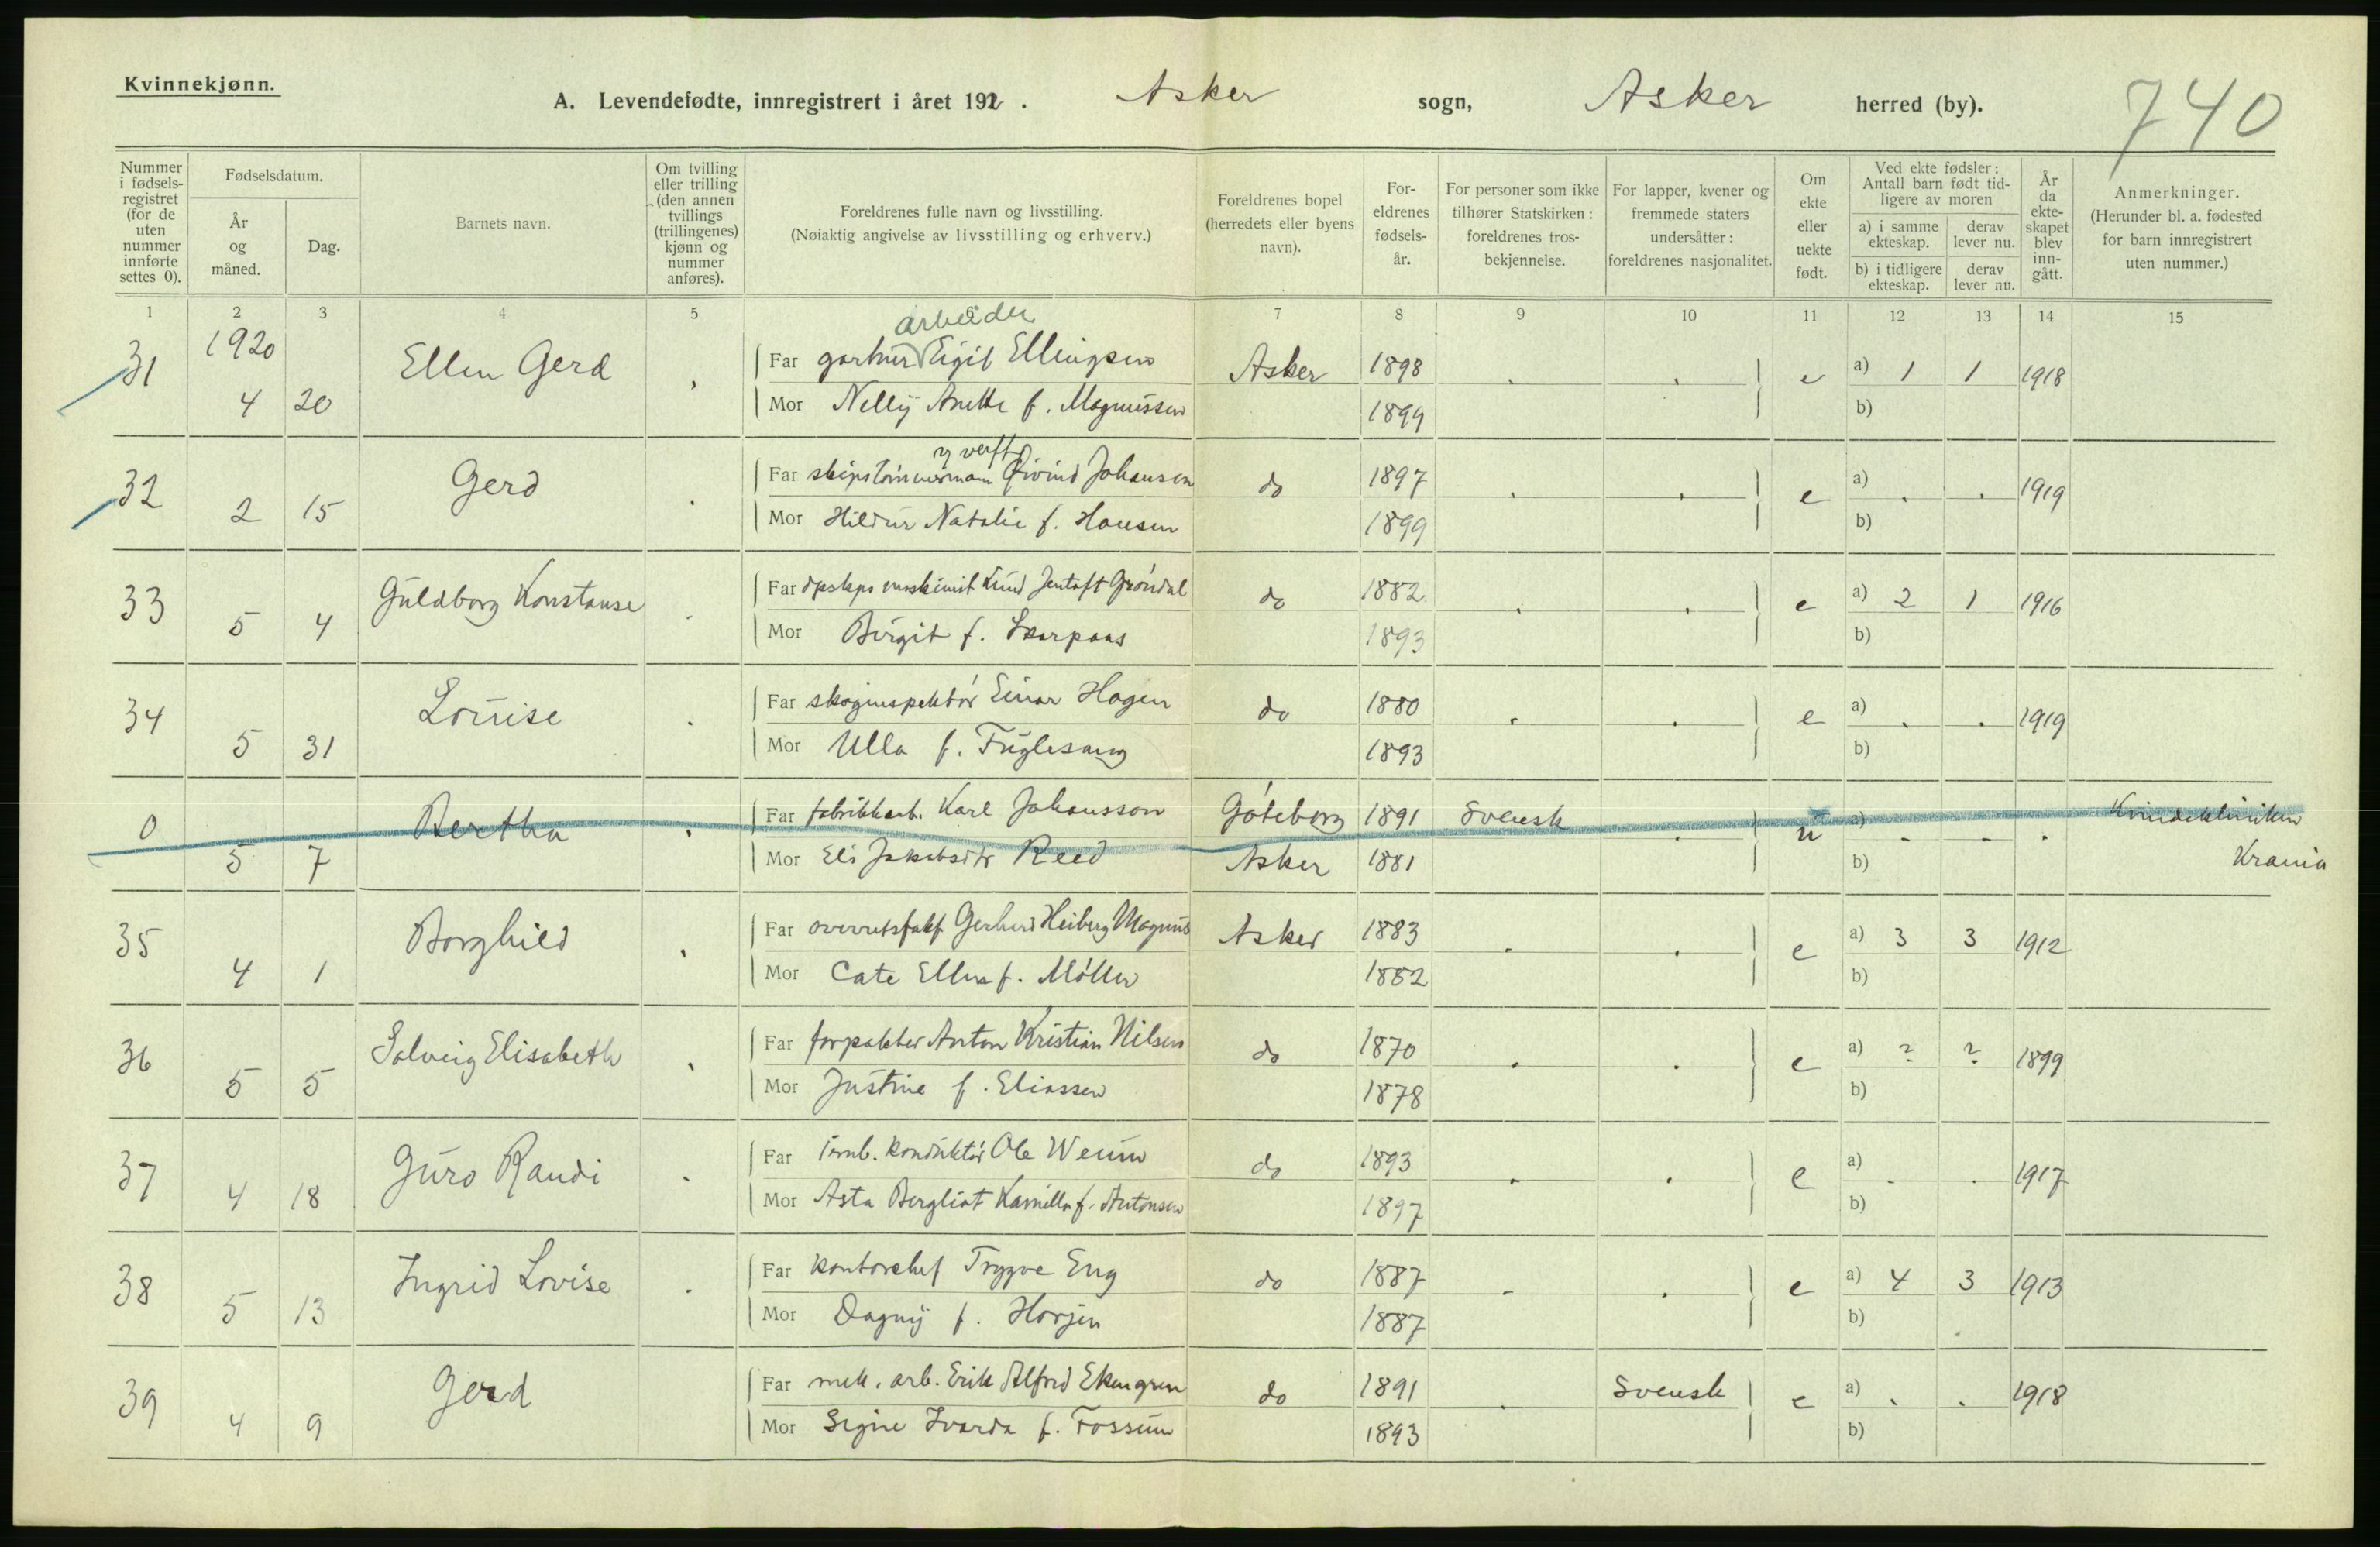 Kvinnekjønn.
A. Levendefødte, innregistrert i året 192 . Asker sogn, Asker herred (by). 740
Nummer i fødsels-registret (for de uten nummer innførte settes 0).
Fødselsdatum.
År og måned.
Dag.
Barnets navn.
Om tvilling eller trilling (den annen tvillings (trillingenes) kjønn og nummer anføres).
Foreldrenes fulle navn og livsstilling.
(Nøiaktig angivelse av livsstilling og erhverv.)
Foreldrenes bopel (herredets eller byens navn).
For-eldrenes fødsels-år.
For personer som ikke tilhører Statskirken: foreldrenes tros-bekjennelse.
For lapper, kvener og fremmede staters undersåtter: foreldrenes nasjonalitet.
Om ekte eller uekte født.
Ved ekte fødsler: Antall barn født tid-ligere av moren
a) i samme ekteskap. derav lever nu.
b) i tidligere ekteskap. derav lever nu.
År da ekte-skapet blev inn-gått.
Anmerkninger.
(Herunder bl. a. fødested for barn innregistrert uten nummer.)
1 2 3 4 5 6 7 8 9 10 11 12 13 14 15
arbeider
31 1920 Ellen Gerd Far gartner Eigil Ellingsen Asker 1898 e a) 1 1 1918
4 20 Mor Nelly Anette f. Magnussen 1899 b)
verft
32 Gerd Far skipstømmermann Øivind Johansen do 1897 e a) . . 1919
2 15 Mor Hildur Natalie f. Hansen 1899 b)
33 Guldborg Konstanse Far dpskps maskinist Knud Jentoft Grøndal do 1882 e a) 2 1 1916
5 4 Mor Birgit f. Skarpaas 1893 b)
34 Louise Far skoginspektør Einar Hagen do 1880 e a) . . 1919
5 31 Mor Ulla f. Fuglesang 1893 b)
0 Bertha Far fabrikkarb. Karl Johansson Göteborg 1891 Svensk u a) - - . Kvindekliniken
5 7 Mor Eli Jakobsdtr Reed Asker 1881 b) Krania
35 Borghild Far overretssakf Gerhard Heiberg Magnus Asker 1883 e a) 3 3 1912
4 1 Mor Cate Ellen f. Møller 1882 b)
36 Solveig Elisabeth Far forpakter Anton Kristian Nilsen do 1870 e a) ? ? 1899
5 5 Mor Justine f. Eliassen 1878 b)
37 Guro Randi Far jernb. konduktør Ole Weum do 1893 e a) . . 1917
4 18 Mor Asta Bergliot Kamilla f. Antonsen 1897 b)
38 Ingrid Lovise Far kontorchef Trygve Eng do 1887 e a) 4 3 1913
5 13 Mor Dagny f. Horjen 1887 b)
39 Gerd Far mek. arb. Erik Alfred Ekengren do 1891 Svensk e a) . . 1918
4 9 Mor Signe Ivarda f. Fossum 1893 b)